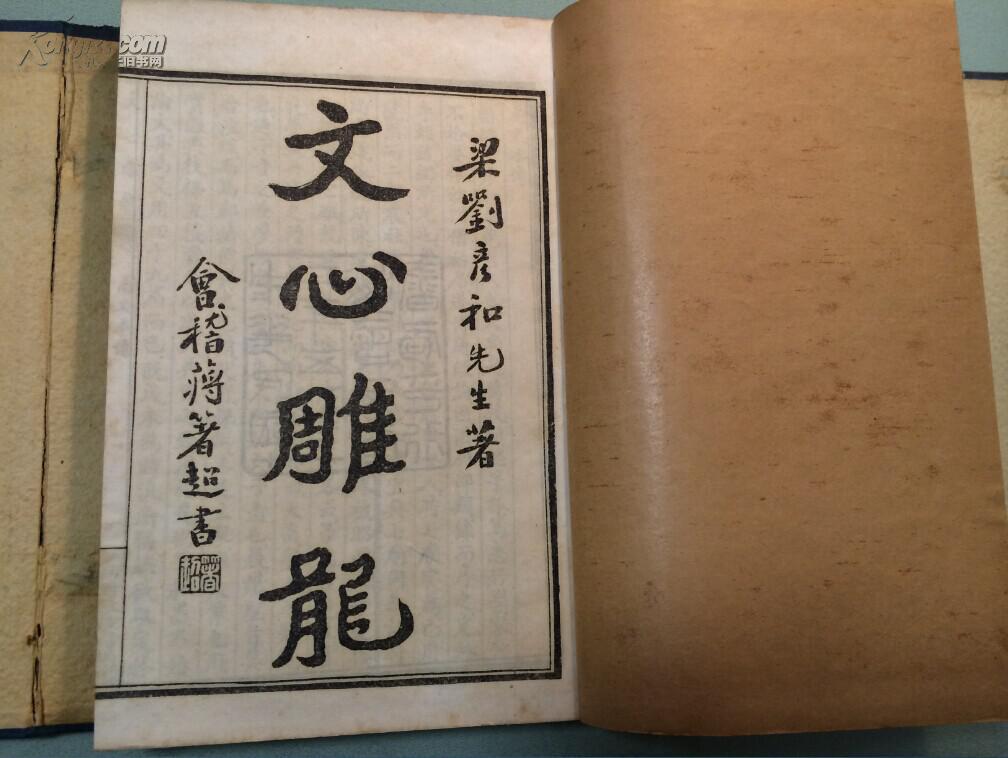 梁劉彦和先生著
文心雕龍
會稽蔣箸超書
Kongfz.com
孔夫子旧书网